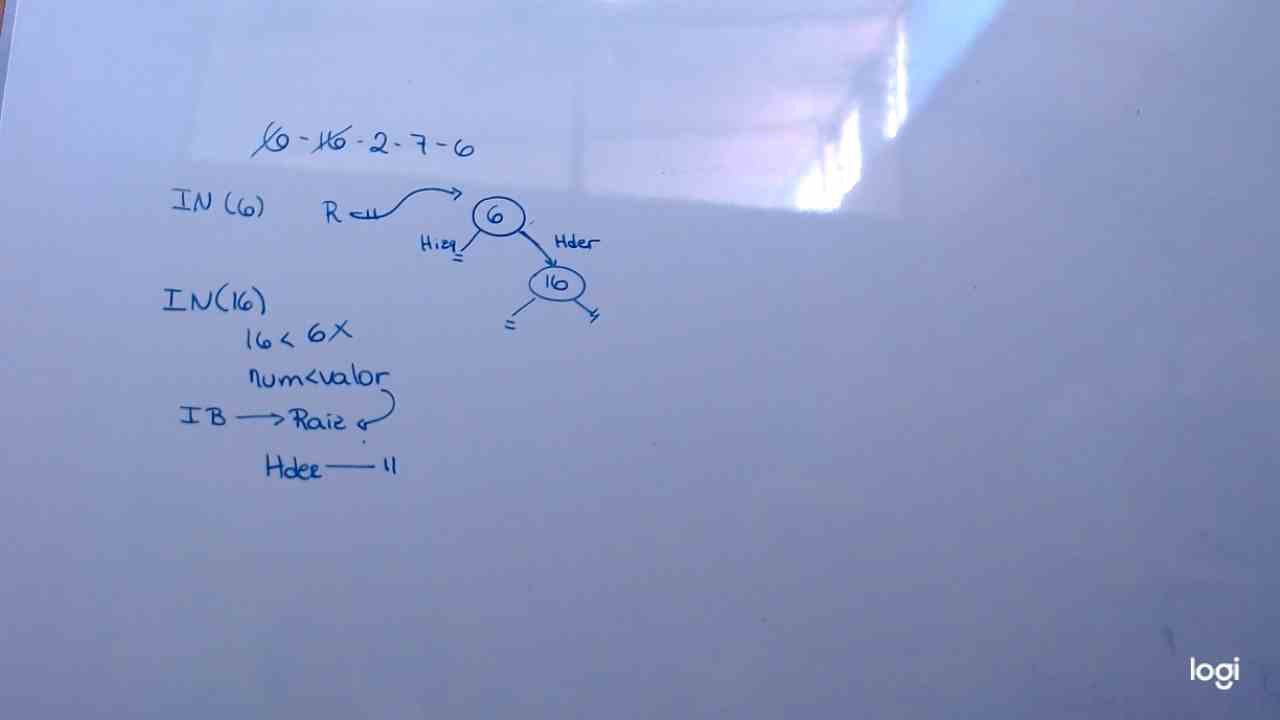 6 - 16 - 2 - 7 - 6
IN (6) R
6
Hizq Hder
16
IN(16)
16 < 6 X
num<valor
IB → Raiz
Hder — "
logi